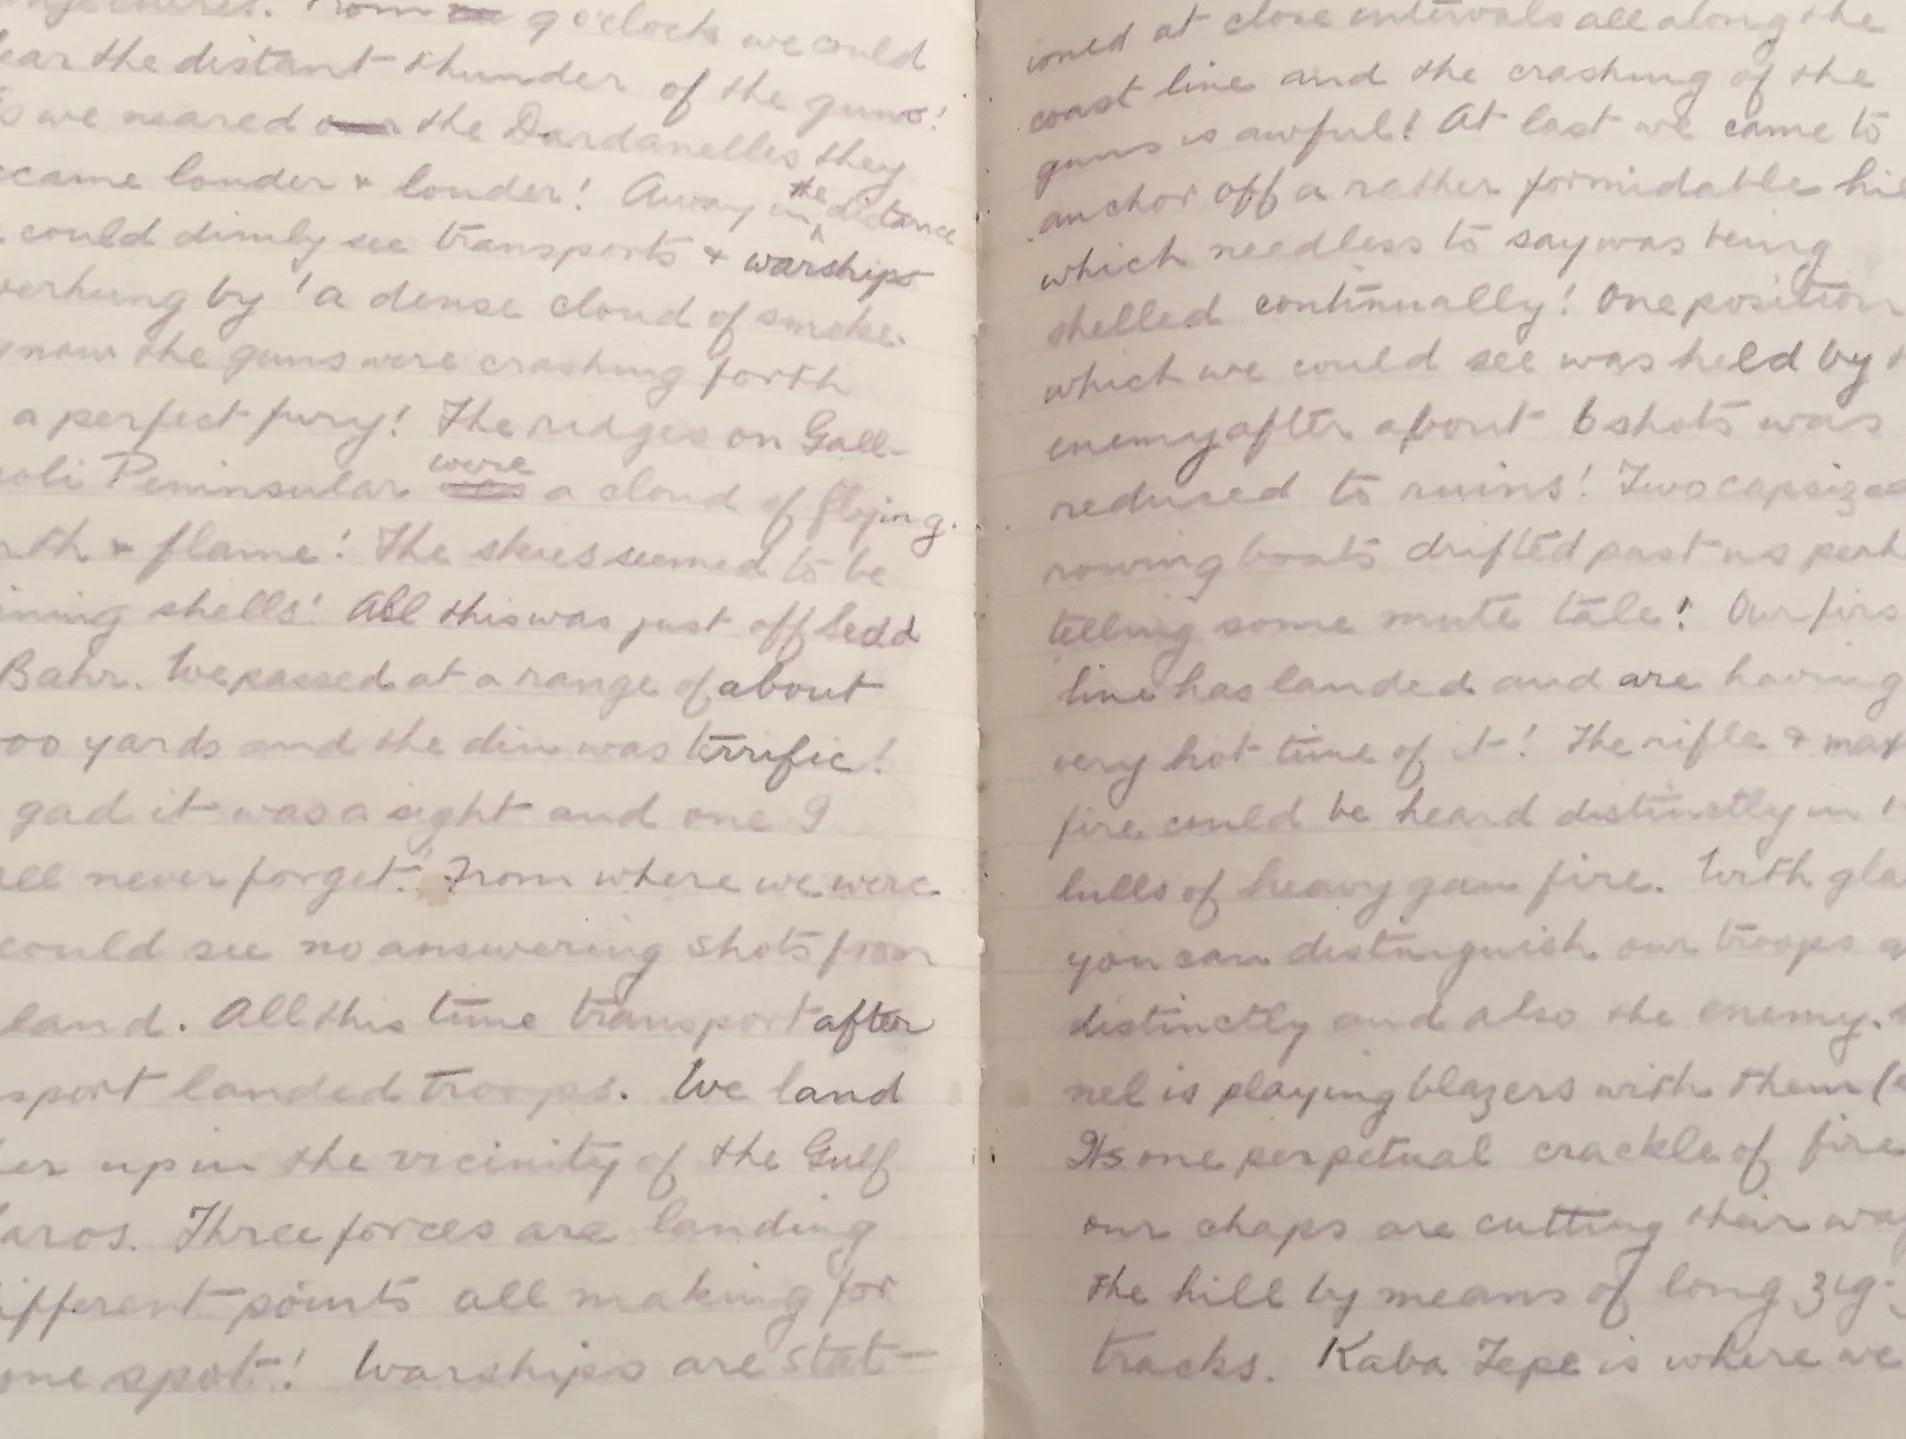 njectures. From 9 o'clock we could
ear the distant thunder of the guns!
s we neared the Dardanelles they
ecame louder & louder! Away in the distance
could dimly see transports & warships
verhung by a dense cloud of smoke.
now the guns were crashing forth
a perfect fury! The ridges on Gall-
poli Peninsular were a cloud of flying
rth & flame! The skies seemed to be
ining shells! All this was just off Sedd
Bahr. We passed at a range of about
00 yards and the din was terrific!
gad it was a sight and one I
all never forget! From where we were
could see no answering shots from
land. All this time transport after
sport landed troops. We land
er up in the vicinity of the Gulf
aros. Three forces are landing
ifferent points all making for
one spot! Warships are stat-
ioned at close intervals all along the
coast line and the crashing of the
guns is awful! At last we came to
anchor off a rather formidable hil
which needless to say was being
shelled continually! One position
which we could see was held by t
enemy after about 6 shots was
redused to ruins! Two capsized
rowing boats drifted past us perh
telling some mute tale! Our firs
line has landed and are having
very hot time of it! The rifle & max
fire could be heard distinctly in t
lulls of heavy gun fire. With gla
you can distinguish our troops q
distinctly and also the enemy.
nel is playing blazers with them
Its one perpetual crackle of fire
our chaps are cutting their way
the hill by means of long zig-
tracks. Kaba Tepe is where we